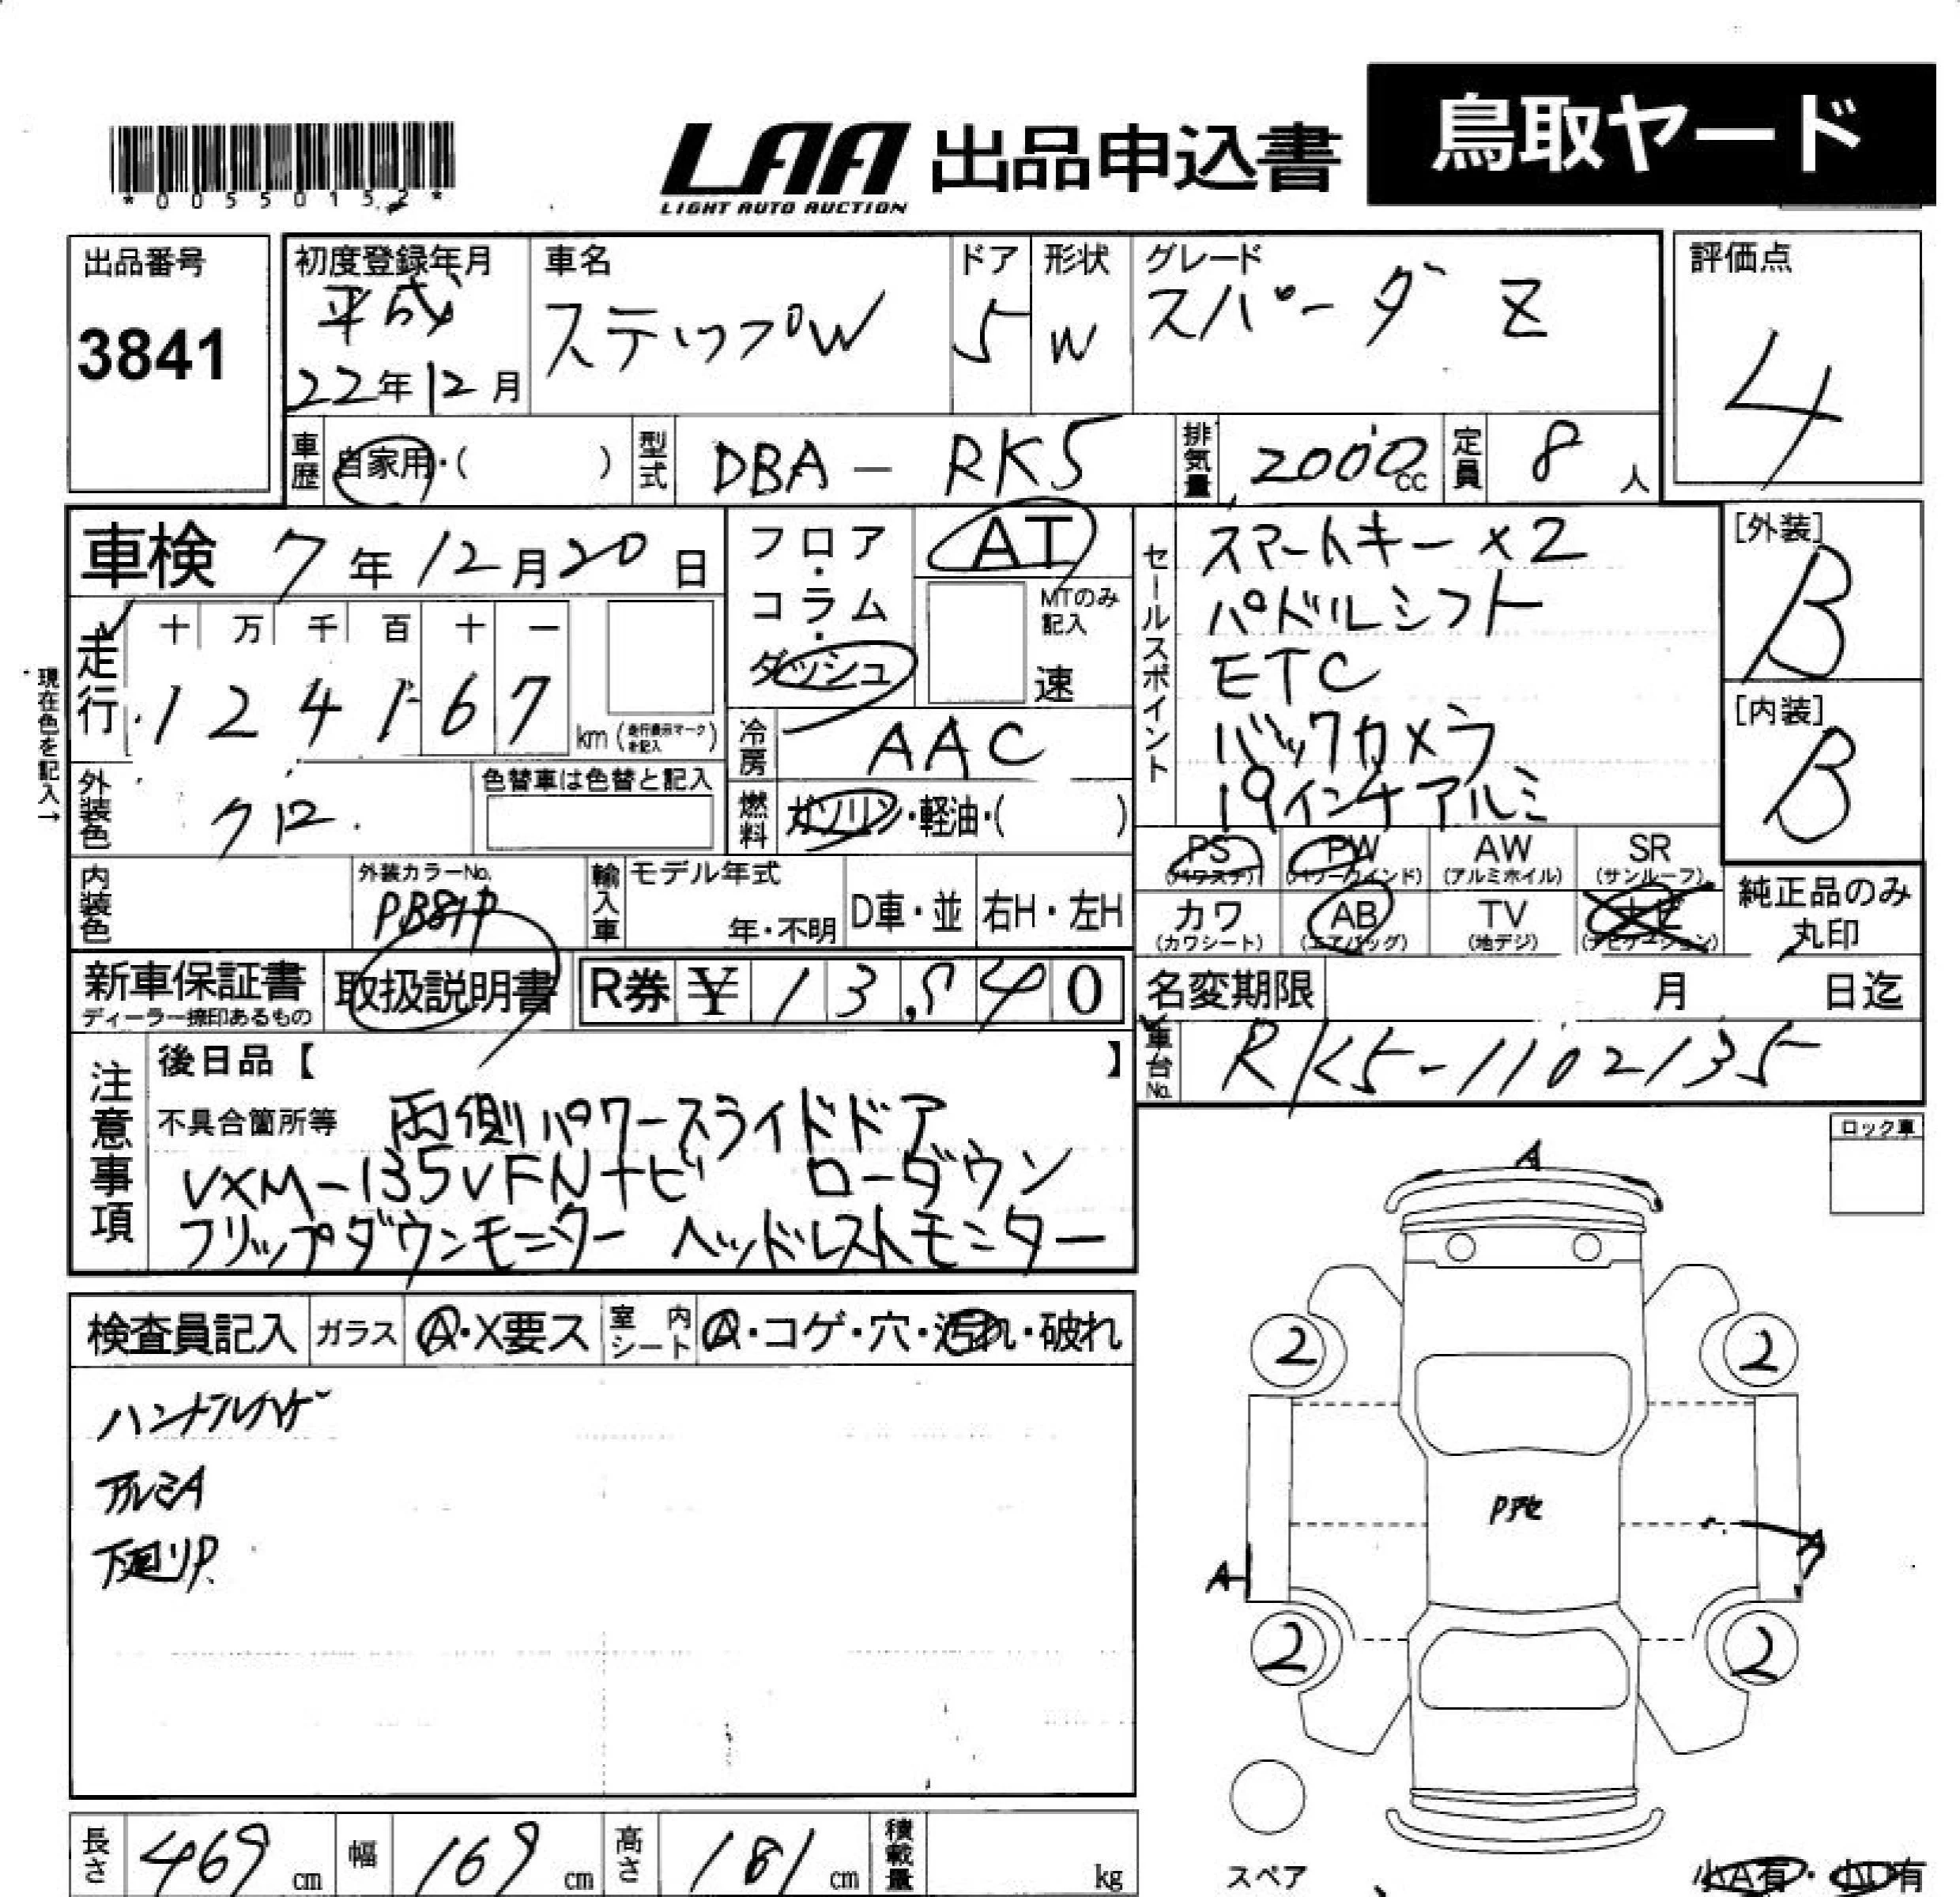 *0055015.2*
LAA 出品申込書 鳥取ヤード
LIGHT AUTO AUCTION
出品番号
3841
初度登録年月
平成
22年12月
車名
ステップW
ドア
5
形状
W
グレード
スパーダ Z
評価点
4
車歴 自家用・( )
型式 DBA-RK5
排気量 2000cc
定員 8人
車検 7年12月20日
フロア・コラム・ダッシュ
AT
MTのみ記入
速
セールスポイント
スマートキー×2
パドルシフト
ETC
バックカメラ
19インチアルミ
[外装]
B
[内装]
B
現在色を記入→
走行
十 万 千 百 十 一
1 2 4 1 6 7
km (走行表示マークを記入)
冷房 AAC
外装色 クロ.
色替車は色替と記入
燃料 ガソリン・軽油・( )
PS (パワステ)
PW (パワーウインド)
AW (アルミホイル)
SR (サンルーフ)
カワ (カワシート)
AB (エアバッグ)
TV (地デジ)
ナビ (ナビゲーション)
純正品のみ
丸印
内装色
外装カラーNo.
PB81P
輸入車
モデル年式
年・不明
D車・並
右H・左H
新車保証書
ディーラー捺印あるもの
取扱説明書
R券 ¥ 13,540
名変期限 月 日迄
車台No. RK5-1102135
注意事項
後日品【 】
不具合箇所等 両側パワースライドドア
VXM-135VFNナビ ローダウン
フリップダウンモニター ヘッドレストモニター
ロック車
検査員記入
ガラス A・X要ス
室内シート A・コゲ・穴・汚れ・破れ
ハンドルハゲ
アルミA
下廻りP
A
2
2
Pアセ
A
A
2
2
スペア
小A有・小U有
長さ 469cm
幅 169cm
高さ 181cm
積載量 kg